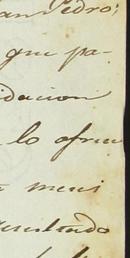 San Pedro;
que pa-
idacion
lo ofrec
a mesi
esultado